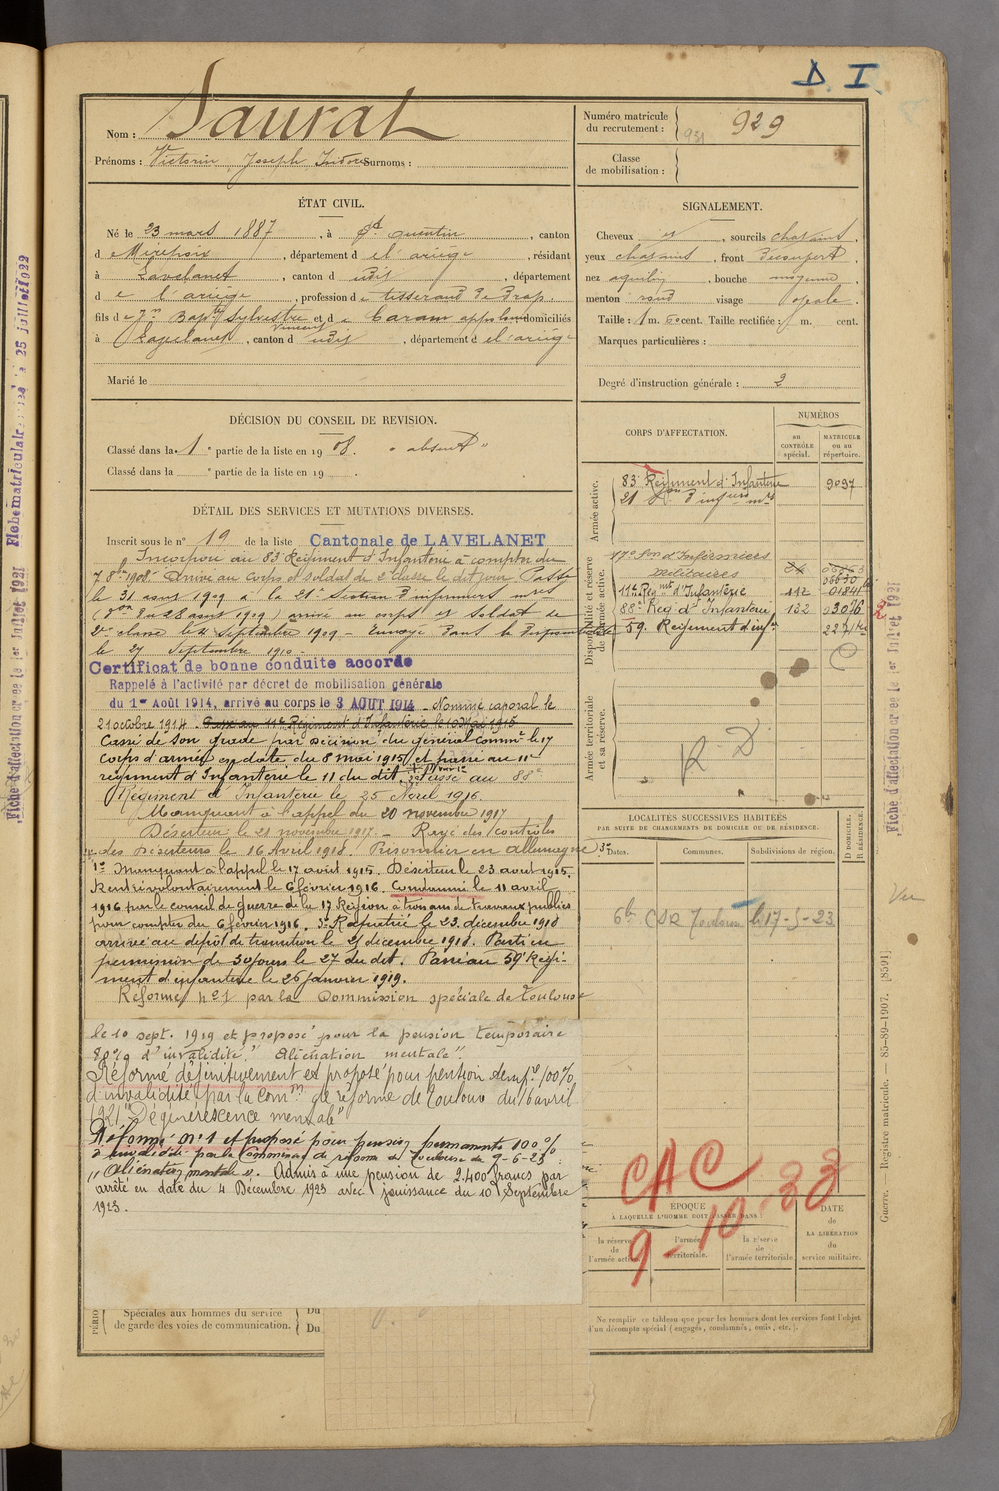 D. I.
Nom : Saurat
Prénoms : Victorin Joseph Isidore Surnoms :
Numéro matricule du recrutement : 931 929
Classe de mobilisation :
ÉTAT CIVIL.
Né le 23 mars 1887, à St Quentin, canton
de Mirepoix, département de l'ariège, résidant
à Lavelanet, canton d udit, département
de l'ariège, profession de tisserand de drap.
fils de Jn Bapte Sylvestre et de Caram domiciliés
Vincent
à Lavelanet, canton d udit, département de l'ariège
Marié le
SIGNALEMENT.
Cheveux et, sourcils chatains,
yeux chatains, front découvert,
nez aquilin, bouche moyenne,
menton rond visage ovale.
Taille : 1 m. 60 cent. Taille rectifiée : m. cent.
Marques particulières :
Degré d'instruction générale : 2
DÉCISION DU CONSEIL DE REVISION.
Classé dans la 1e partie de la liste en 1908. "absent"
Classé dans la e partie de la liste en 19
CORPS D'AFFECTATION.
NUMÉROS
au CONTRÔLE spécial.
MATRICULE ou au répertoire.
Armée active.
83 Régiment d'Infanterie 9097
21 Son d'infirs mres
Disponibilité et réserve de l'armée active.
17e Son d'Infirmiers
militaires
06630
11e Régmt d'Infanterie 112 01841
88e Rég d'Infanterie 132 03026
59. Régiment d'infie
Armée territoriale et sa réserve.
R D
DÉTAIL DES SERVICES ET MUTATIONS DIVERSES.
Inscrit sous le n° 19 de la liste Cantonale de LAVELANET
Incorporé au 83 Régiment d'Infanterie à compter du
7 8bre 1908. Arrivé au corps et soldat de 2e classe le dit jour. Passé
le 31 aout 1909 à la 21e Section d'infirmiers mres
(Don du 28 aout 1909) arrivé au corps et soldat de
2me classe le 4 septembre 1909 - Envoyé dans la disponibilité
le 27 Septembre 1910.
Certificat de bonne conduite accordé
Rappelé à l'activité par décret de mobilisation générale
du 1er Août 1914, arrivé au corps le 3 AOUT 1914 - Nommé caporal le
21 octobre 1914. Passé au 11e Régiment d'Infanterie le 10 Mai 1915
Cassé de son grade par décision du général Commt le 17
corps d'armée en date du 8 mai 1915 et passé au 11e
régiment d'Infanterie le 11 du dit. Passé au 88e
Régiment d'Infanterie le 25 Avril 1916.
Manquant à l'appel du 20 novembre 1917
Déserteur le 21 novembre 1917. - Rayé des contrôles
des déserteurs le 16 Avril 1918. Prisonnier en allemagne 3°
1° Manquant à l'appel le 17 août 1915. Déserteur le 23 août 1915.
Rentré volontairement le 6 février 1916. Condamné le 11 avril
1916 par le conseil de guerre de la 17 Région à trois ans de travaux publics
pour compter du 6 février 1916. 3° Rapatrié le 23 décembre 1918
arrivé au dépôt de transition le 27 décembre 1918. Parti en
permission de 30 jours le 27 du dit. Passé au 59e Régi-
ment d'infanterie le 26 janvier 1919.
Réformé n°1 par la Commission spéciale de Toulouse
le 10 sept. 1919 et proposé pour la pension temporaire
80% d'invalidité. "Aliénation mentale".
Réformé définitivement et proposé pour pension 100%
d'invalidité par la Comon de réforme de Toulouse du 6 avril
1921 "Dégénérescence mentale"
Réformé n°1 et proposé pour pension permanente 100%
d'invalidité par la Commission de réforme de Toulouse du 9-6-23 :
"Aliénation mentale". Admis à une pension de 2.400 francs par
arrêté en date du 4 Décembre 1923 avec jouissance du 10 Septembre
1923.
LOCALITÉS SUCCESSIVES HABITÉES
PAR SUITE DE CHANGEMENTS DE DOMICILE OU DE RÉSIDENCE.
Dates. Communes. Subdivisions de région. D DOMICILE. R RÉSIDENCE.
CSR Toulouse le 17-5-23
CAC
9-10-33
ÉPOQUE
À LAQUELLE L'HOMME DOIT PASSER DANS :
la réserve de l'armée active.
l'armée territoriale.
la réserve de l'armée territoriale.
DATE de LA LIBÉRATION du service militaire.
Ne remplir ce tableau que pour les hommes dont les services font l'objet
d'un décompte spécial (engagés, condamnés, omis, etc.).
PÉRIO
Spéciales aux hommes du service
de garde des voies de communication.
Du
Du
Guerre. — Registre matricule. — 85-89-1907. [8591]
Fiche d'affectation créée le 1er Juillet 1921
Fiche d'affectation créée le 1er Juillet 1921 Fiche matriculaire créée le 25 juillet 1922
Vu